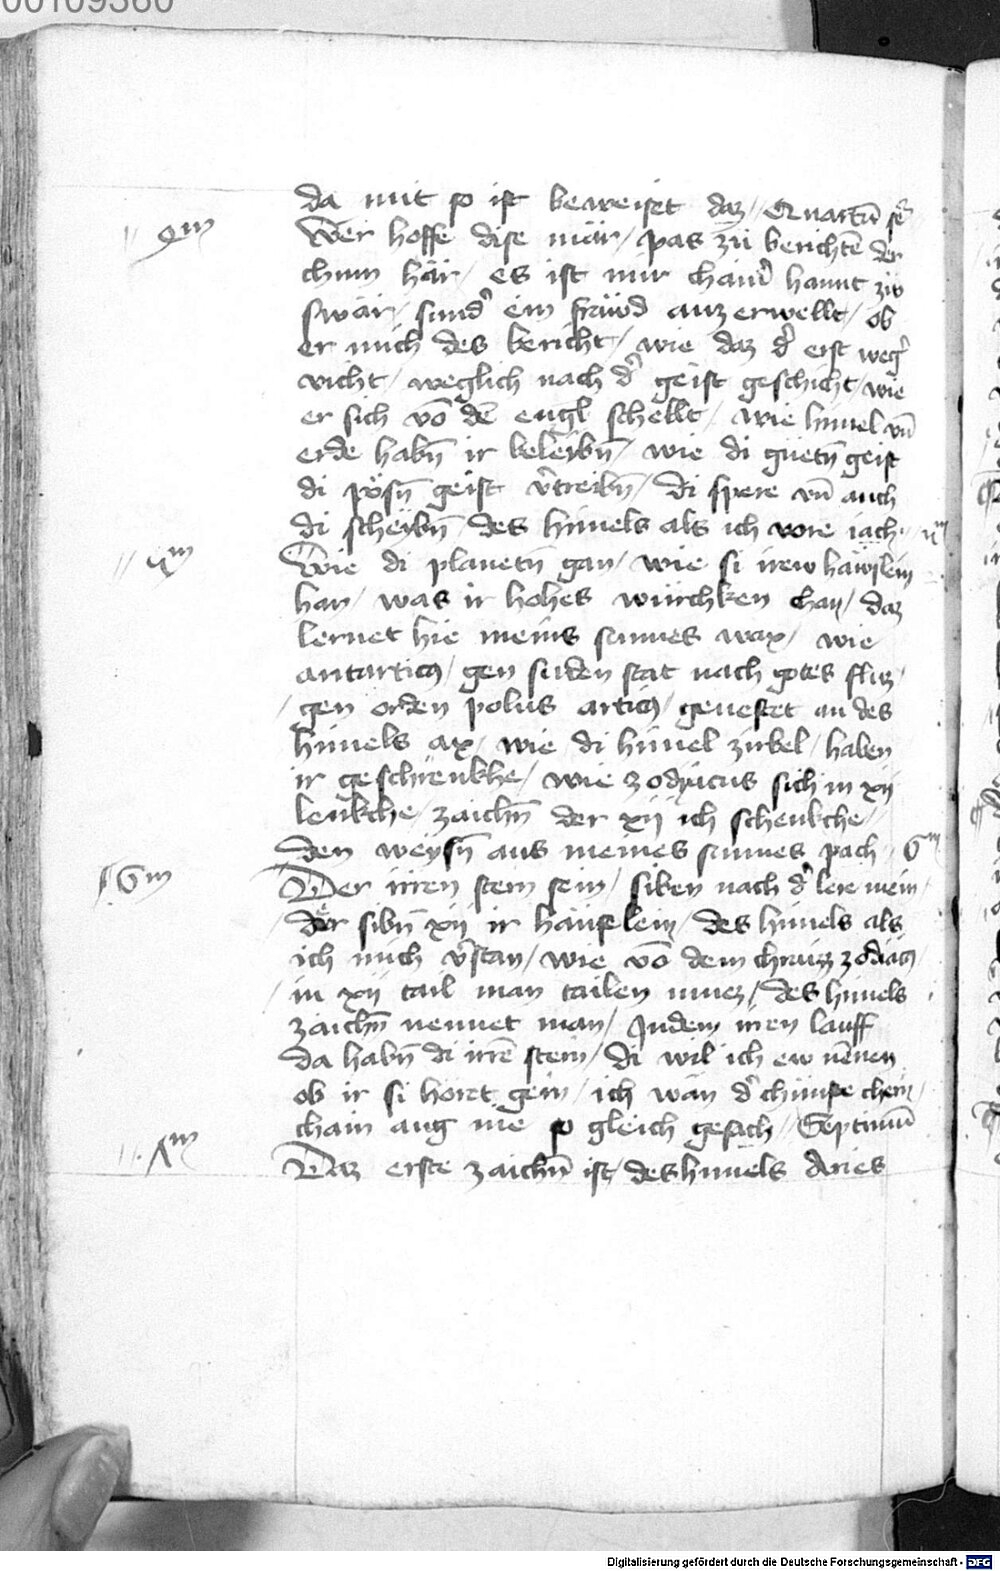 00109380
da mit so ist beweiset daz / Quartū
4m
Wer hoffe dise mär / pas zu berichtē der
chum här / es ist mir chainˀ hannt zü
swär / sundˀ ein fräwd auz erwellt / ob
er mich des bericht / wie daz dˀ erst wegˀ
vicht / weglich nach dˀ geist geschicht / wie
er sich vō dē engl schellt / wie himel vn̄
erde habn̄ ir beleibn̄ / wie di gueten̄ geist
di pösn̄ geist v̾treibn̄ / di spere vn̄ auch
di scheybn̄ des himels als ich vore iach
5m
Wie di planetn̄ gan / wie si irew häwslein
han / was ir hohes würchken chan / daz
lernet hie meins sinnes wax / wie
antarticꝰ / gen suden stat nach gotes fliz
/ gen orden polus articꝰ / gevestet an des
himels ax / wie di himel zirkel / haben
ir geschrenkhe / wie zodyacus sich in xij
lenkche / zaichn̄ der xij ich schenkche
den weysn̄ aus meines sinnes pach / 6m
6m
Der irren stern sein / siben nach dˀ lere mein
/ der sibn̄ xij ir häuslein / des himels als
ich mich v̾stan / wie vō dem chraizz zodiacꝰ
/ in xij tail man tailen muez / des himels
zaichn̄ nennet man / Indem iren lauff
da habn̄ di irrē stern / di wil ich ew nēnen
ob ir si horet gern / ich wän dˀ chunste chern
chain aug nie so gleich gesach / Septimū
7m
Daz erste zaichn̄ ist / des himels Aries
Digitalisierung gefördert durch die Deutsche Forschungsgemeinschaft - DFG